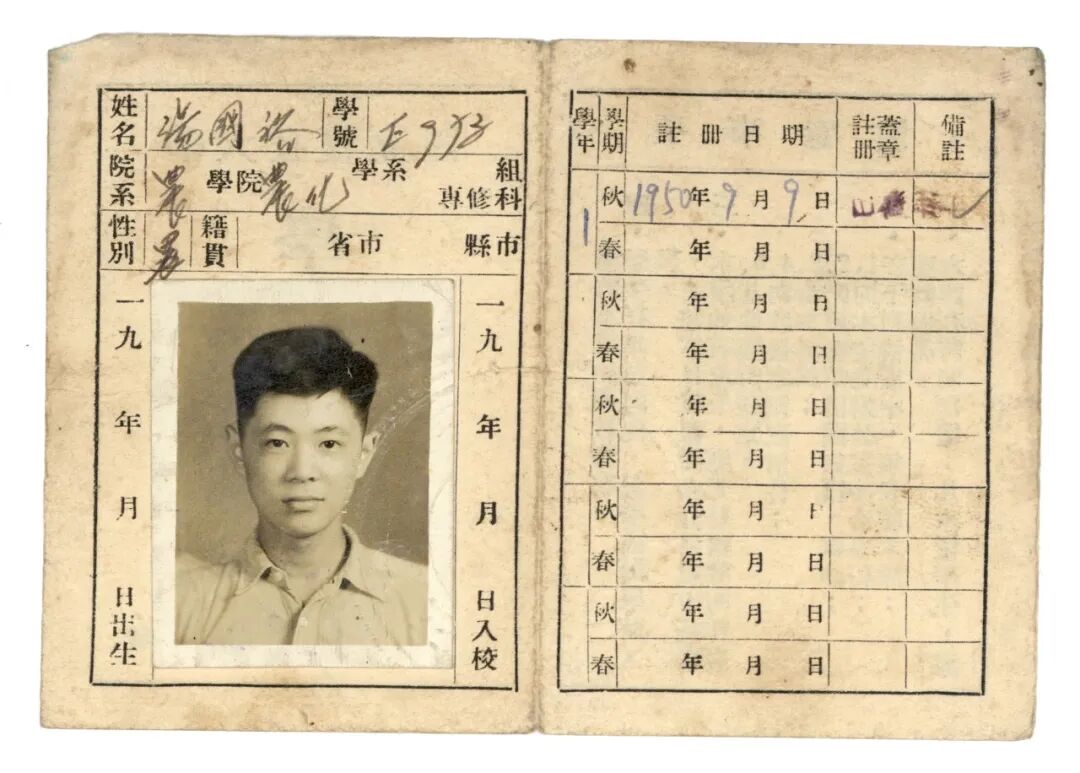 姓名 國裕 學號
院系 農 學院 農化 學系 組
專修科
性別 男 籍貫 省市 縣市
一九 年 月 日出生
一九 年 月 日入校
學年 學期 註冊日期 註冊蓋章 備註
1 秋 1950年9月9日
春 年 月 日
秋 年 月 日
春 年 月 日
秋 年 月 日
春 年 月 日
秋 年 月 日
春 年 月 日
秋 年 月 日
春 年 月 日